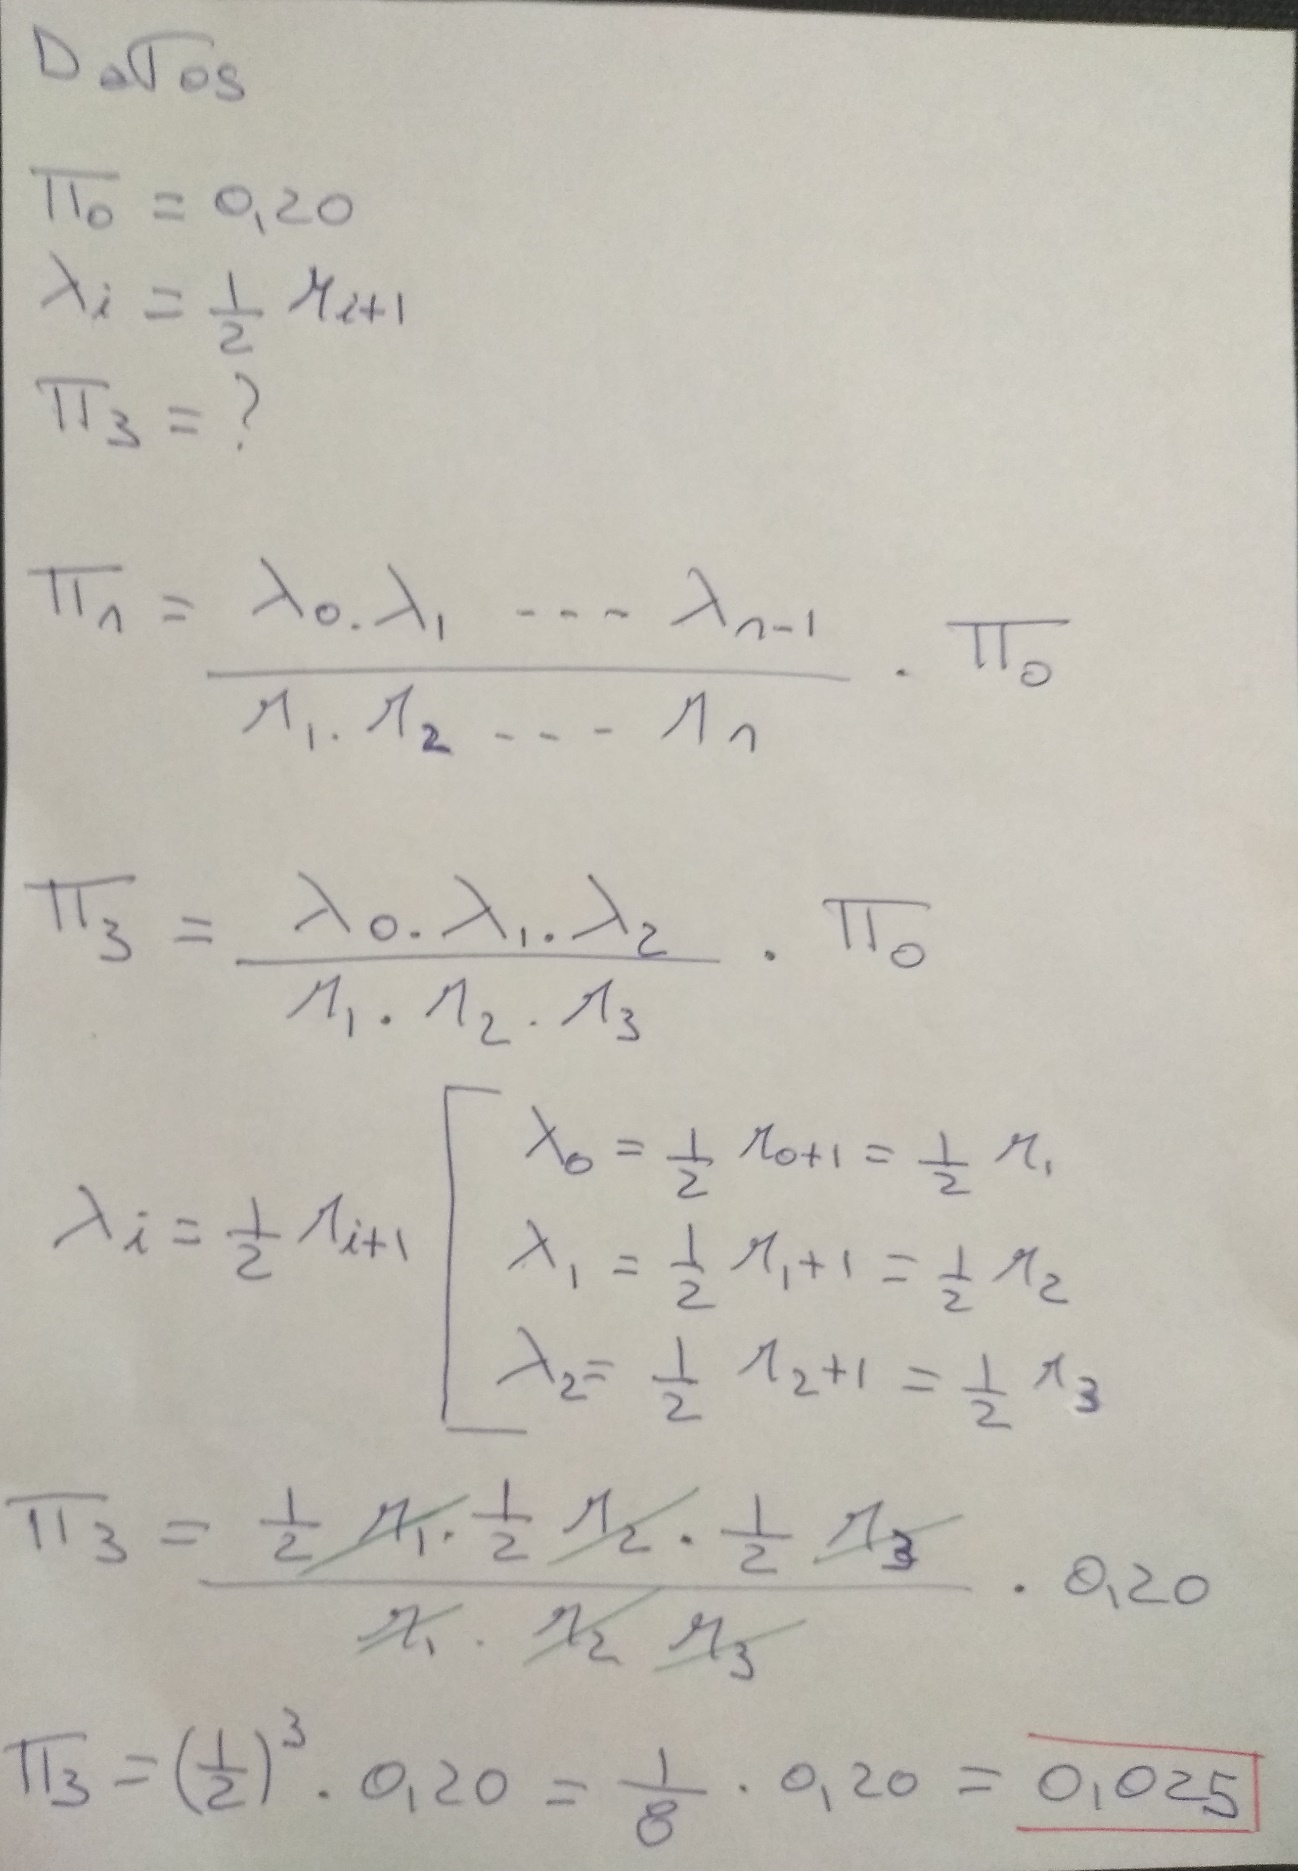 Datos
Π₀ = 0,20
λi = 1/2 μi+1
Π₃ = ?
Πn = (λ₀ . λ₁ ---- λn-1) / (μ₁ . μ₂ ---- μn) . Π₀
Π₃ = (λ₀ . λ₁ . λ₂) / (μ₁ . μ₂ . μ₃) . Π₀
λi = 1/2 μi+1
λ₀ = 1/2 μ0+1 = 1/2 μ₁
λ₁ = 1/2 μ1+1 = 1/2 μ₂
λ₂ = 1/2 μ2+1 = 1/2 μ₃
Π₃ = (1/2 μ₁ . 1/2 μ₂ . 1/2 μ₃) / (μ₁ . μ₂ μ₃) . 0,20
Π₃ = (1/2)³ . 0,20 = 1/8 . 0,20 = 0,025